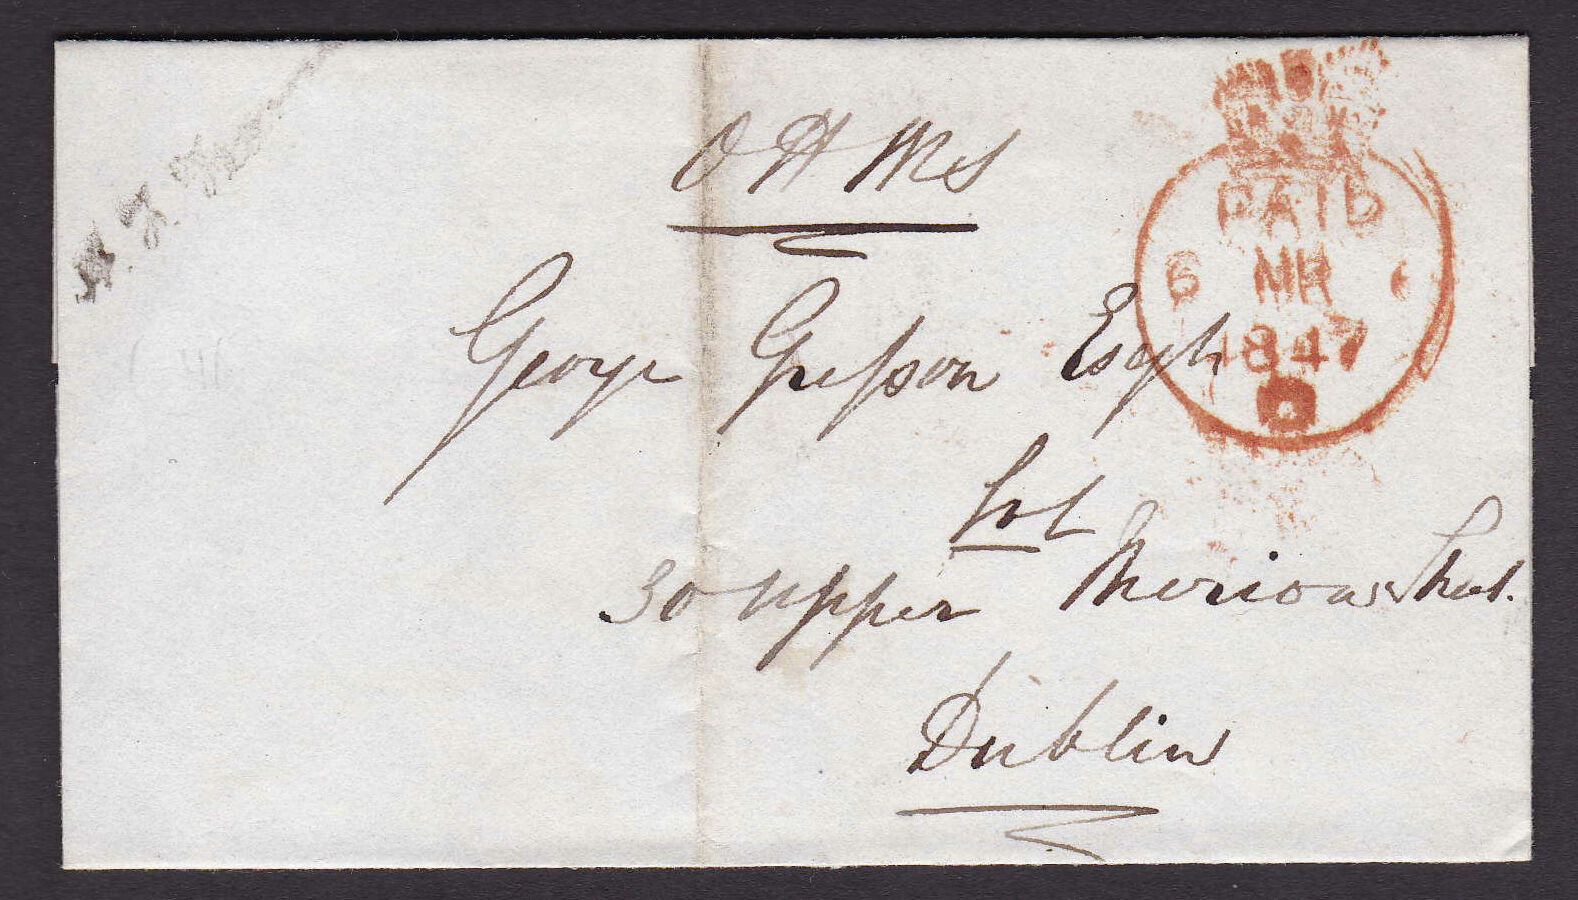 O H M S
PAID
6 MR 6
1847
George Greſson Esqr
Sol
30 Upper Merion Street.
Dublin